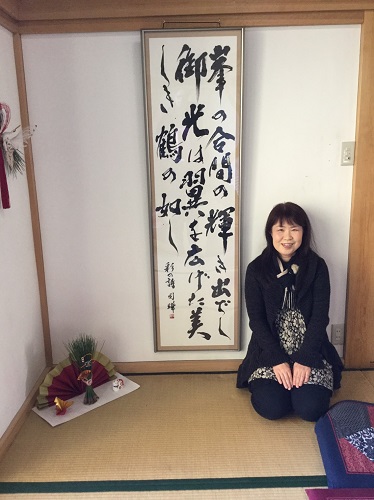 峯の合間の輝き出でし
御光は翼を広げた美
しき鶴の如し